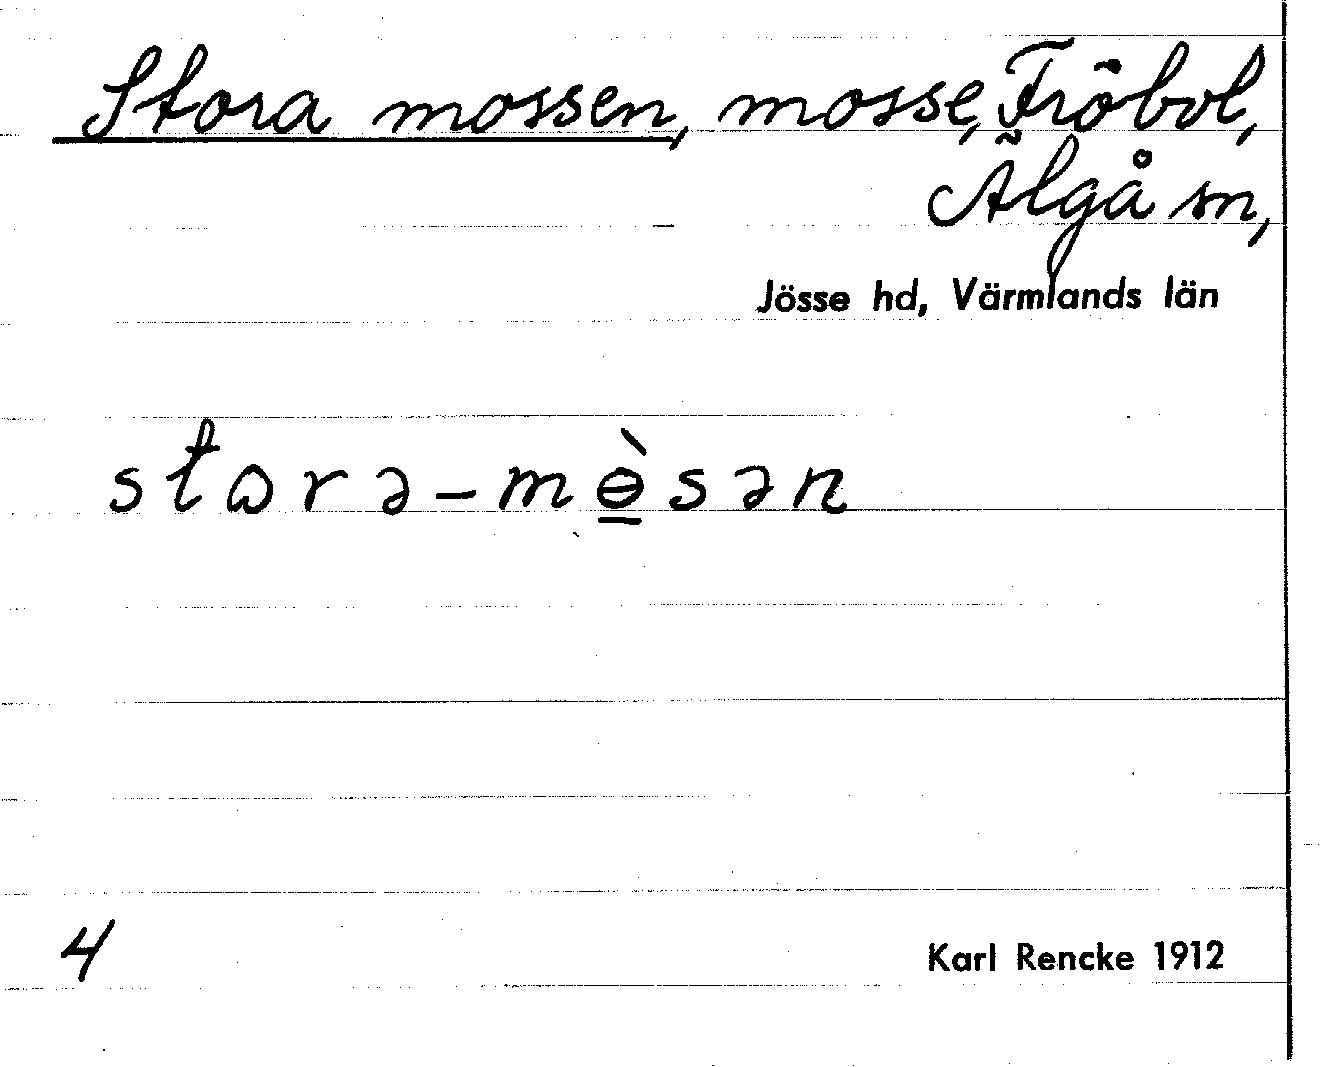 Stora mossen, mosse, Fröbol,
Älgå sn,
Jösse hd, Värmlands län
stɷrə-mɵ̱̀sən
4
Karl Rencke 1912